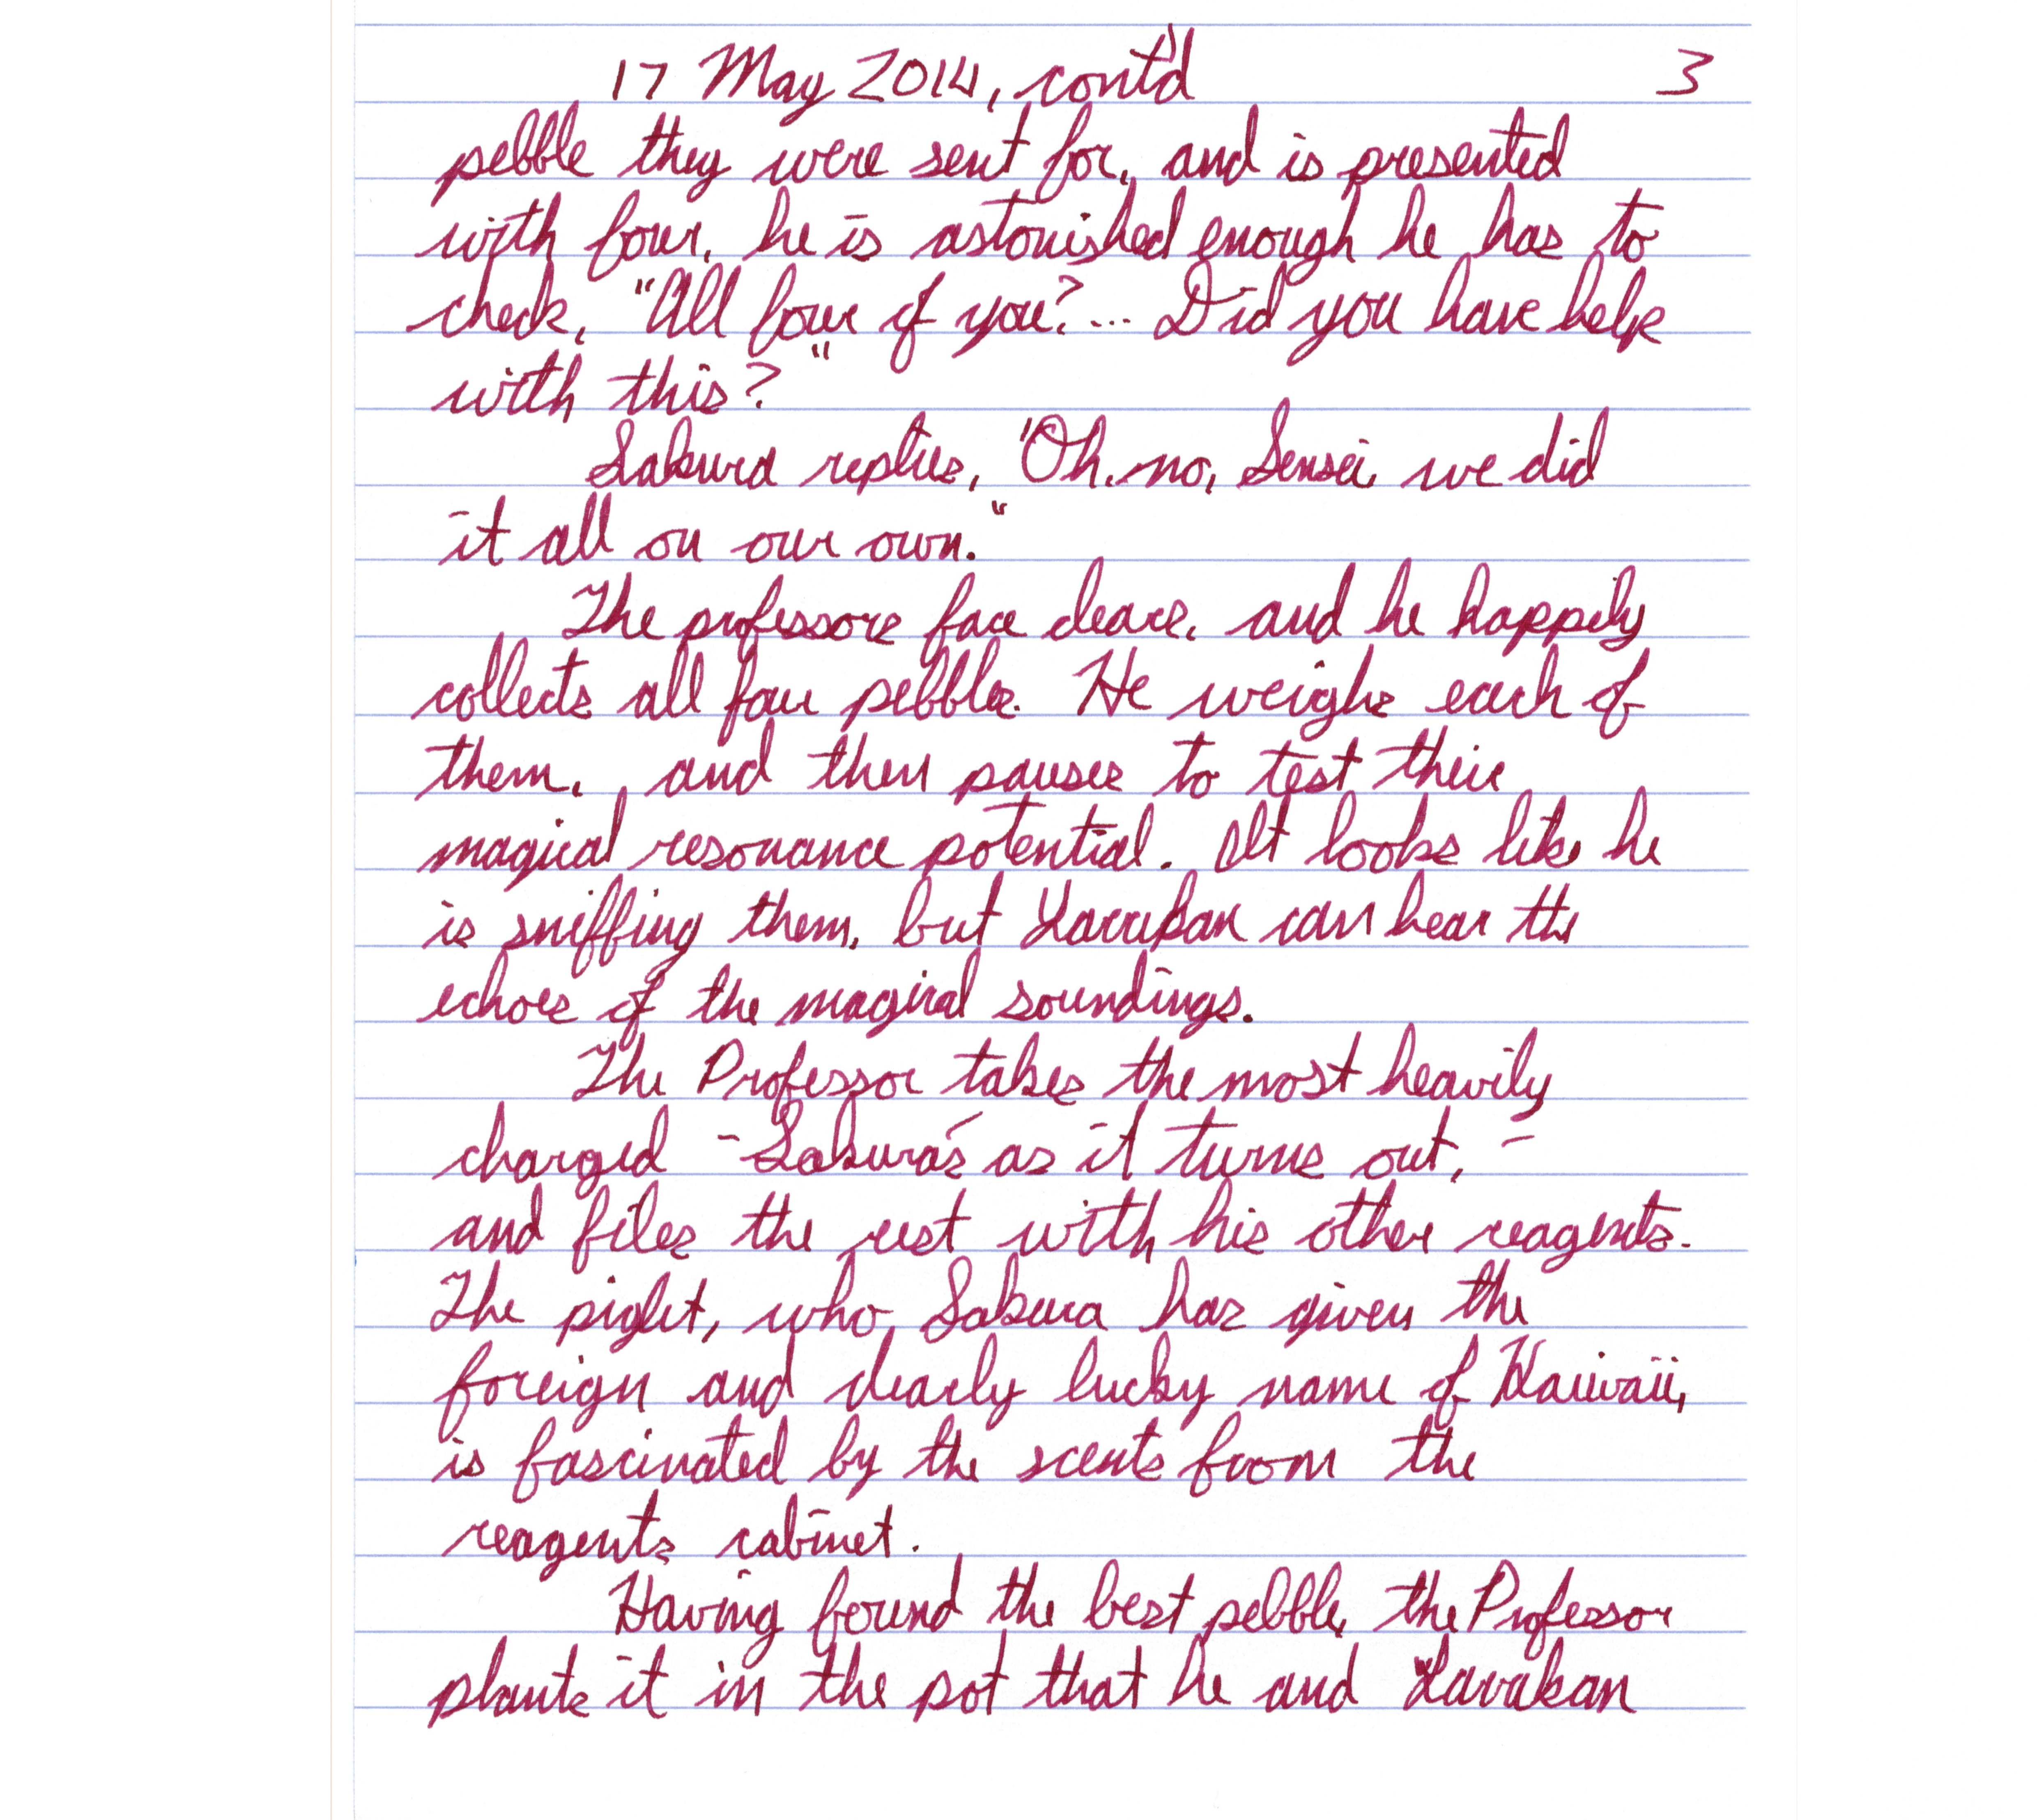 17 May 2014, cont'd 3
pebble they were sent for, and is presented
with four, he is astonished enough he has to
check, "All four of you?... Did you have help
with this?"
Sakura replies, "Oh, no, Sensei, we did
it all on our own."
The professors face clears, and he happily
collects all four pebbles. He weighs each of
them, and then pauses to test their
magical resonance potential. It looks like he
is sniffing them, but can hear the
echoes of the magical soundings.
The Professor takes the most heavily
charged - Sakura's as it turns out, -
and files the rest with his other reagents.
The piglet, who Sakura has given the
foreign and clearly lucky name of
is fascinated by the scents from the
reagents cabinet.
Having found the best pebble, the Professor
plants it in the pot that he and Lavakan